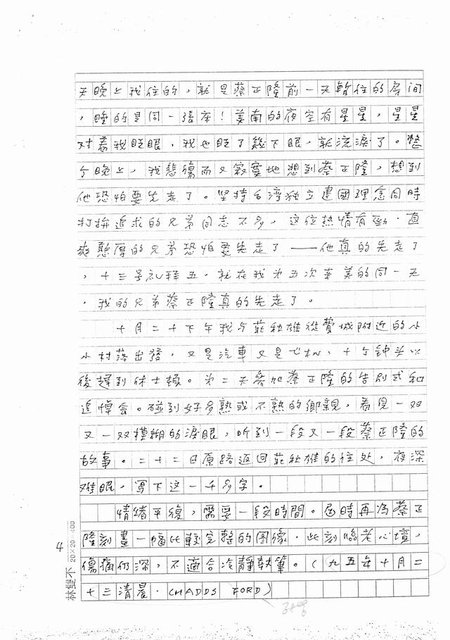 天晚上我住的，就是蔡正隆前一天躺住的房间
，睡的是同一張床！美南的夜空有星星，星星
對着我眨眼，我也眨了幾下眼，就流淚了。整
个晚上，我悲傷而又寂寞地想到蔡正隆，想到
他恐怕要先走了。堅持台湾独立建國理念同時
打拚追求的兄弟同志不多，這位热情有勁、直
爽憨厚的兄弟恐怕要先走了——他真的先走了
，十三号礼拜五，就在我为五次来美的同一天
，我的兄弟蔡正隆真的先走了。
十月二十下午我与莊秋雄從費城附近的小
小村落出發，又是汽車又是飞机，十个钟头以
後趕到休士頓。为二天参加蔡正隆的告别式和
追悼会。碰到好多熟或不熟的鄉親，看見一双
又一双模糊的淚眼，听到一段又一段蔡正隆的
故事。二十二日原路返回莊秋雄的住处，夜深
难眠，写下这一千多字。
情绪平復，需要一段時間。屆時再为蔡正
隆刻畫一幅比較完整的圖像。此刻喘未心寒，
傷痛仍深，不適合冷靜執筆。（一九五年十月二
十三清晨．CHADDS FORD）
4
20×20=400
林雙不